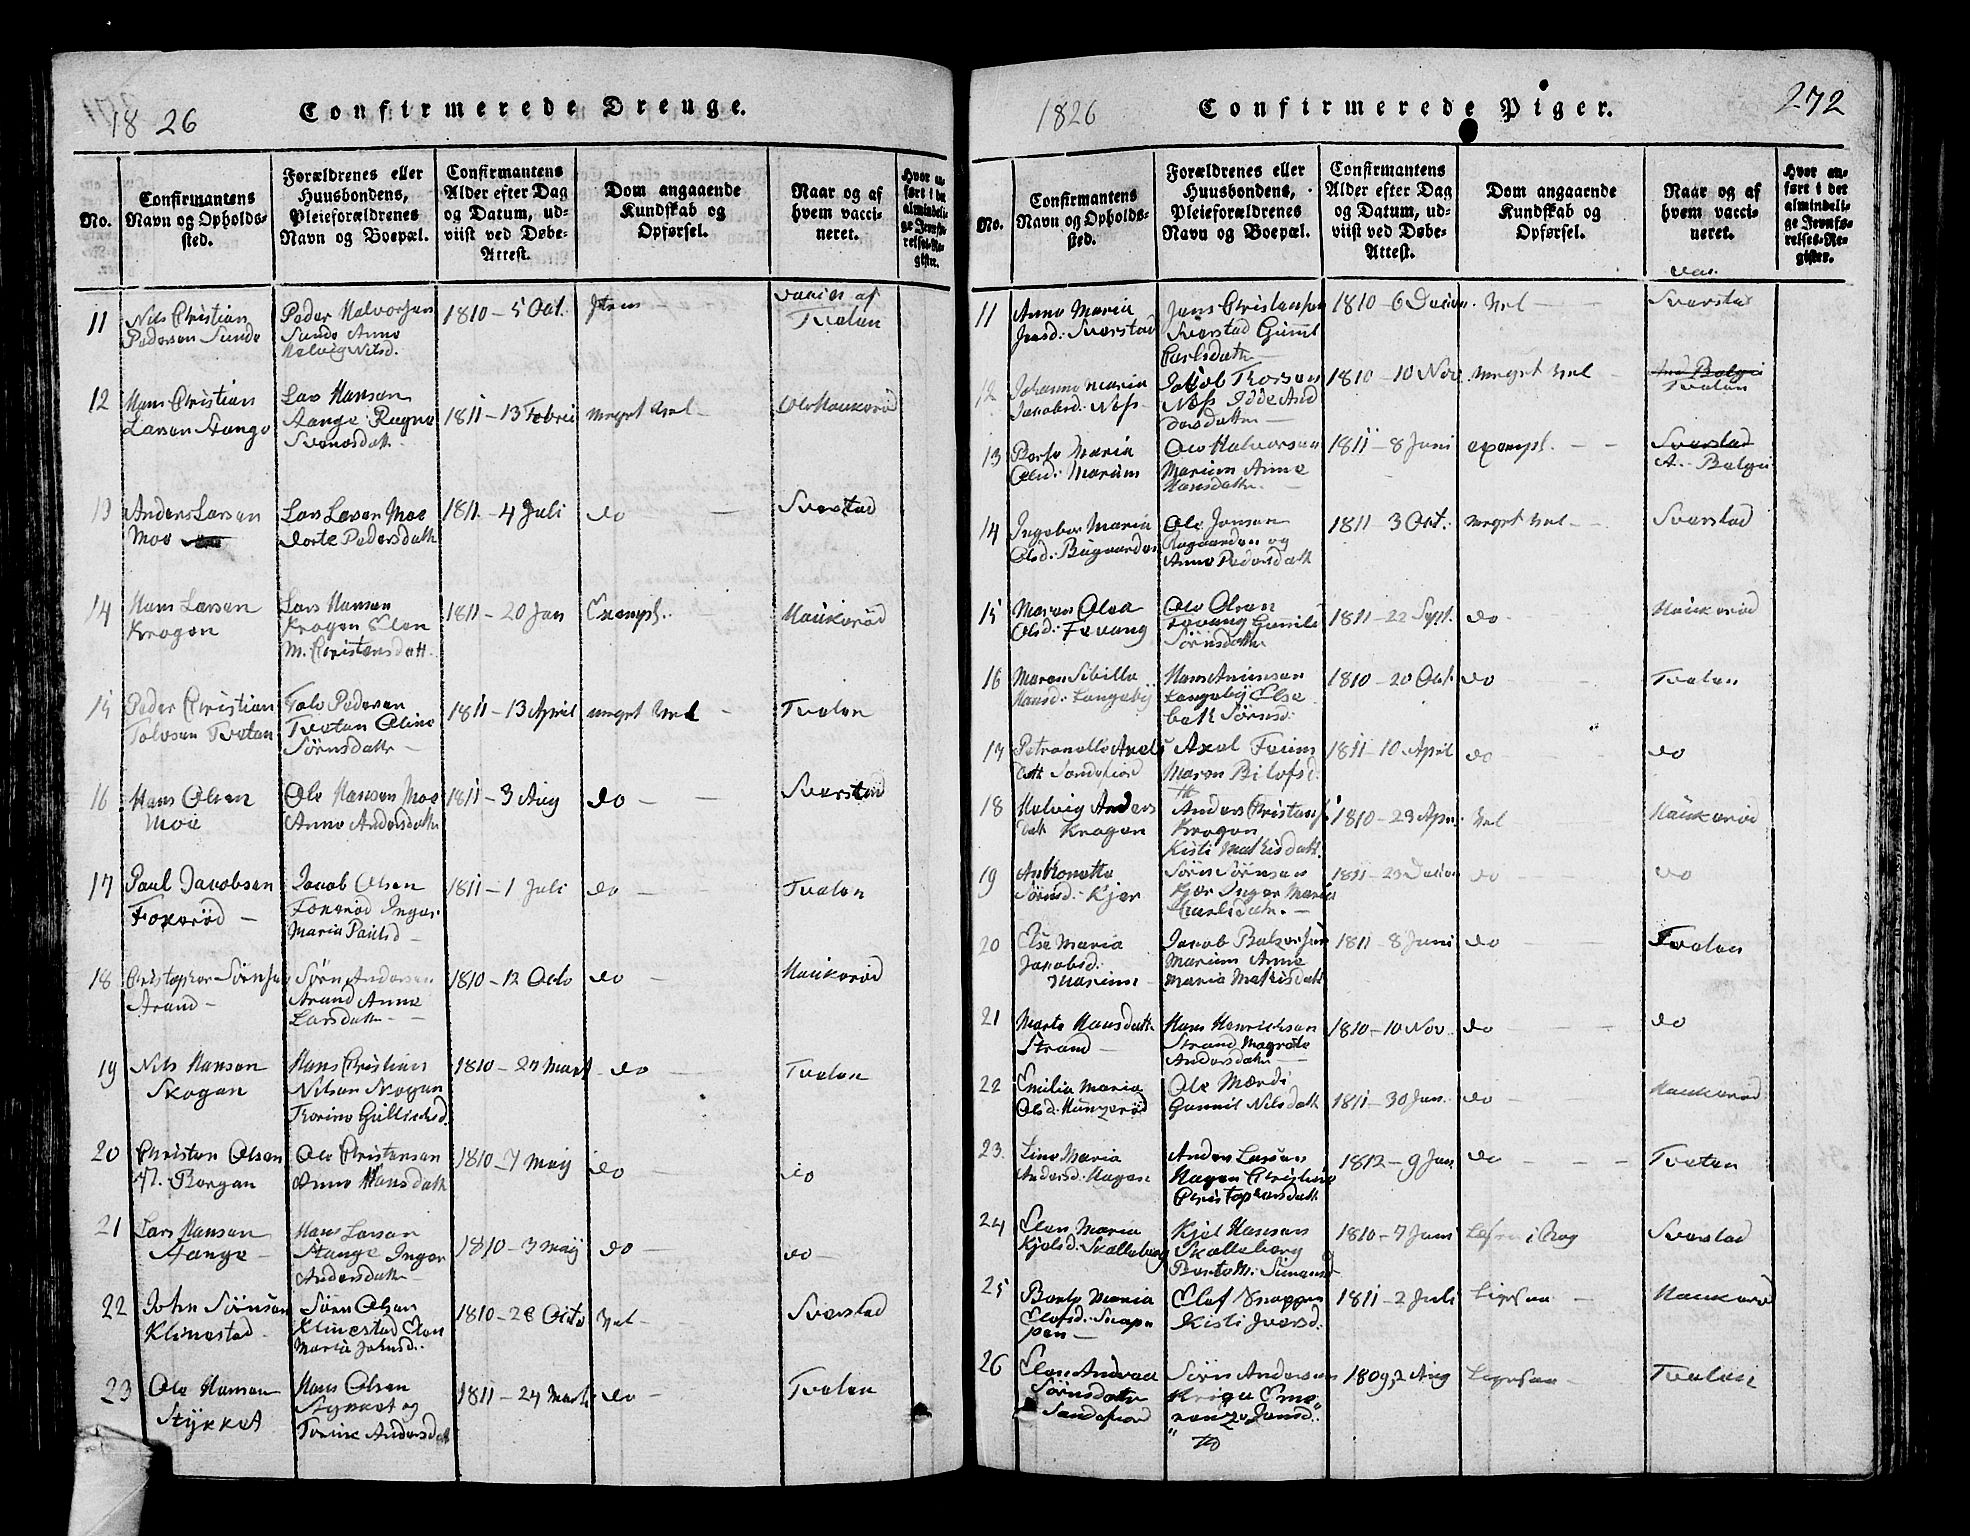 1826 Confirmerede Drenge.
No.
Confirmantens
Navn og Opholds-
sted.
Forældrenes eller
Huusbondens,
Pleieforældrenes
Navn og Boepæl.
Confirmantens
Alder efter Dag
og Datum, ud-
viist ved Døbe-
Attest.
Dom angaaende
Kundskab og
Opførsel.
Naar og af
hvem vacci-
neret.
Hvor an-
ført i det
almindeli-
ge Jevnfø-
relses-Re-
gister.
11 Nils Christian
Pedersen Sunde
Peder Halvorsen
Sunde Anne
Helvig Nilsd.
1810 - 5 Oct.
Item
vaccin af
Tveten
12 Hans Christian
Larsen Stange
Lars Hansen
Stange Ragne
Svensdatt.
1811 - 13 Febru
meget vel
Ole Haukerød
13 Anders Larsen
Moe
Lars Larsen Moe
Dorte Pedersdatt
1811 - 4 Juli
do
Sverstad
14 Hans Larsen
Krogen
Lars Hansen
Krogen Elen
M. Christensdatt.
1811 - 20 Jan
Exempl.
Haukerød
15 Peder Christian
Tolvsen Tveten
Tolv Pedersen
Tveten Oline
Sørnsdatt
1811 - 13 April
meget vel
Tveten
16 Hans Olsen
Moe
Ole Hansen Moe
Anne Andersdatt
1811 - 3 Aug
do
Sverstad
17 Paul Jacobsen
Foxerød
Jacob Olsen
Foxerød Inger
Maria Paulsd
1811 - 1 Juli
do
Tveten
18 Christopher Sørnsen
Strand
Sørn Andersen
Strand Anne
Larsdatt
1810 - 12 Octo
do
Haukerød
19 Nils Hansen
Skogan
Hans Christian
Nilsen Skogan
Torine Gullichsd.
1810 - 27 Mart
do
Tveten
20 Christen Olsen
N. Borgen
Ole Christensen
Anne Hansdatt
1810 - 7 May
do
do
21 Lars Hansen
Stange
Hans Larsen
Stange Inger
Andersdatt
1810 - 3 Maij
do
do
22 John Sørnsen
Klinestad
Sørn Olsen
Klinestad Elen
Maria Johnsd.
1810 - 28 Octo
Vel
Sverstad
23 Ole Hansen
Stykket
Hans Olsen
Stykket og
Torine Andersdatt
1811 - 24 Marts
do
Tveten
1826 Confirmerede Piger. 272
No.
Confirmantens
Navn og Opholds-
sted.
Forældrenes eller
Huusbondens,
Pleieforældrenes
Navn og Boepæl.
Confirmantens
Alder efter Dag
og Datum, ud-
viist ved Døbe-
Attest.
Dom angaaende
Kundskab og
Opførsel.
Naar og af
hvem vacci-
neret.
Hvor an-
ført i det
almindeli-
ge Jevnfø-
relses-Re-
gister.
11 Anne Maria
Jensd: Sverstad
Jens Christensen
Sverstad Gunil
Carlsdatt
1810 - 6 Decem.
Vel
vac.
Sverstad
12 Johanne Maria
Jacobsd: Næss
Jacob Thorsen
Næss Idde And
dersdatter
1810 - 10 Nov
meget vel
Tveten
13 Berte Maria
Olsd: Marum
Ole Halvorsen
Marum Anne
Hansdatt
1811 - 8 Juni
exempl.
Sverstad
A. Bolgen
14 Ingebor Maria
Olsd: Bugaarden
Ole Jensen
Bugaarden og
Anne Pedersdatt
1811 3 Oct.
meget vel
Sverstad
15 Maren Olea
Olsd: Fevang
Ole Olsen
Fevang Gunild
Sørnsdatt
1811 - 22 Sept.
do
Haukerød
16 Maren Sibille
Hansd: Langebÿ
Hans Anensen
Langebÿ Else
beth Sørnsd.
1810 - 20 Oct
do
Tveten
17 Petronelle Axels
datt Sandefiord
Axel Feim
Maren Bilofsd.
1811 - 10 April
do
do
18 Helvig Anders
datt Krogen
Anders Christens.
Krogen
Kisti Mathisdatt.
1810 - 23 Apr.
Vel
Haukerød
19 Anthonette
Sørnsd: Kjer
Sørn Sørnsen
Kjer Inger Maria
Carlsdatt.
1811 - 23 Decem
do
do
20 Else Maria
Jacobsd:
Marum
Jacob Balzersen
Marum Anne
Maria Mathisdatt
1811 - 8 Juni
do
Tveten
21 Marte Hansdatt
Strand
Hans Henrichsen
Strand Magrete
Andersdatt
1810 - 10 Nov.
do
do
22 Emilia Maria
Olsd. Hunzerød
Ole
Gunnil Nilsdatt
1811 - 30 Jan.
do
Haukerød
23. Line Maria
Andersd: Hagen
Anders Larsen
Hagen Christine
Christophersdatt
1812 - 9 Jan
do
Tveten
24 Elen Maria
Kjelsd: Skælleberg
Kjel Hansen
Skælleberg
Berte M. Simensd
1810 - 7 Juni
Læser i Bog
Sverstad
25 Berte Maria
Elofsd: Snap
pen
Elof Snappen
Kisti Iversd.
1811 - 2 Juli
Ligesaa
Haukerød
26 Elen Andrea
Sørnsdatter
Sandefiord
Sørn Andersen
1809, 2 Aug
Ligesaa
Tveten